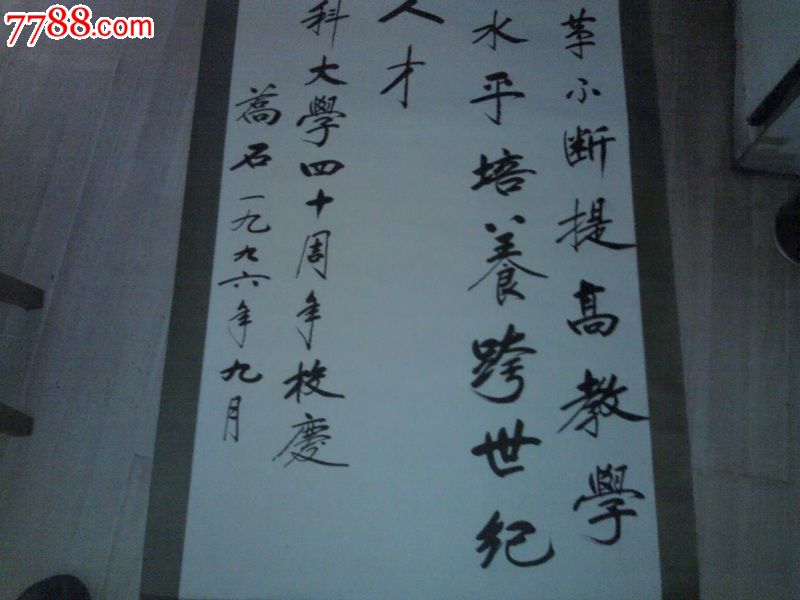 7788.com
革不断提高教學
水平培養跨世纪
人才
科大學四十周年校慶
喬石一九九六年九月